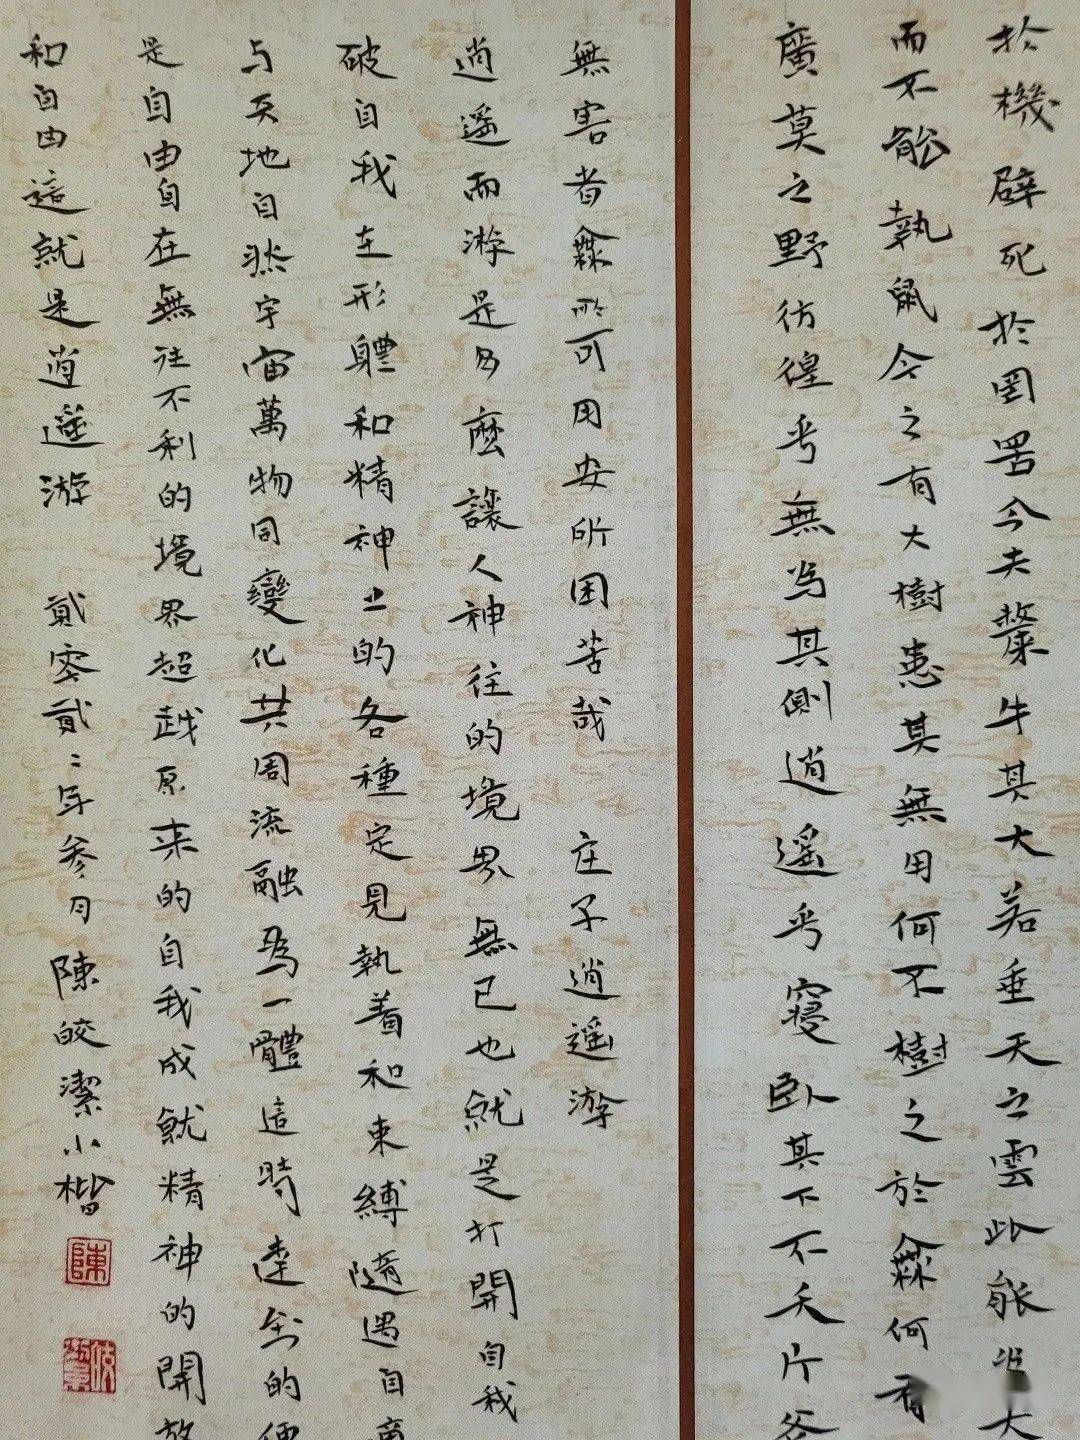 於機辟死於罔罟今夫斄牛其大若垂天之雲此能為大
而不能執鼠今之有大樹患其無用何不樹之於無何有
廣莫之野彷徨乎無為其側逍遙乎寢臥其下不夭斤斧
無害者無所可用安所困苦哉 庄子逍遥游
逍遥而游是多麼讓人神往的境界無已也就是打開自我
破自我在形體和精神上的各種定見執着和束縛隨遇自適
与天地自然宇宙萬物同變化共周流融為一體這時達到的便
是自由自在無往不利的境界超越原来的自我成就精神的開放
和自由這就是逍遥游 貳零貳二年叁月陳皎潔小楷
陳